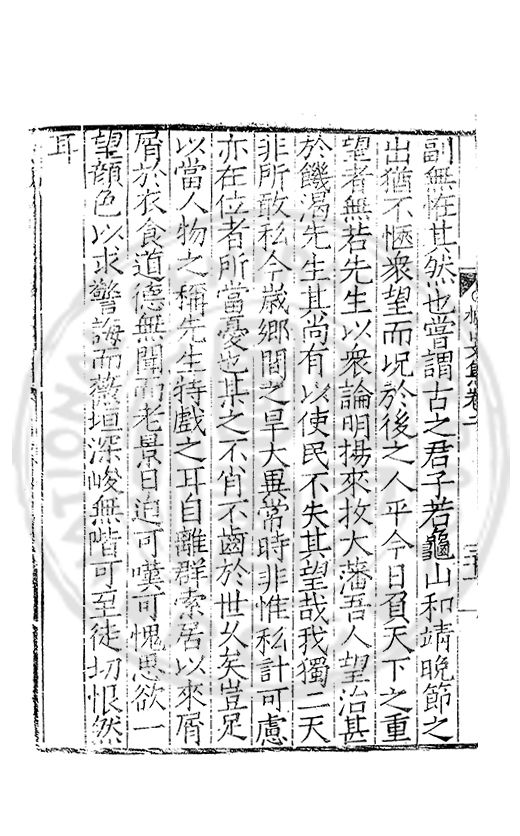 副無怪其然也嘗謂古之君子若龜山和靖晚節之
出猶不愜衆望而况於後之人乎今日負天下之重
望者無若先生以衆論明揚來按大藩吾人望治甚
於饑渴先生其尚有以使民不失其望哉我獨二天
非所敢私今歲鄉間之旱大異常時非惟私計可慮
亦在位者所當憂也某之不肖不齒於世乆矣豈足
以當人物之稱先生特戲之耳自離群索居以來屑
屑於衣食道德無聞而老景日迫可嘆可愧思欲一
望顔色以求警誨而薇垣深峻無階可至徒切恨然
耳